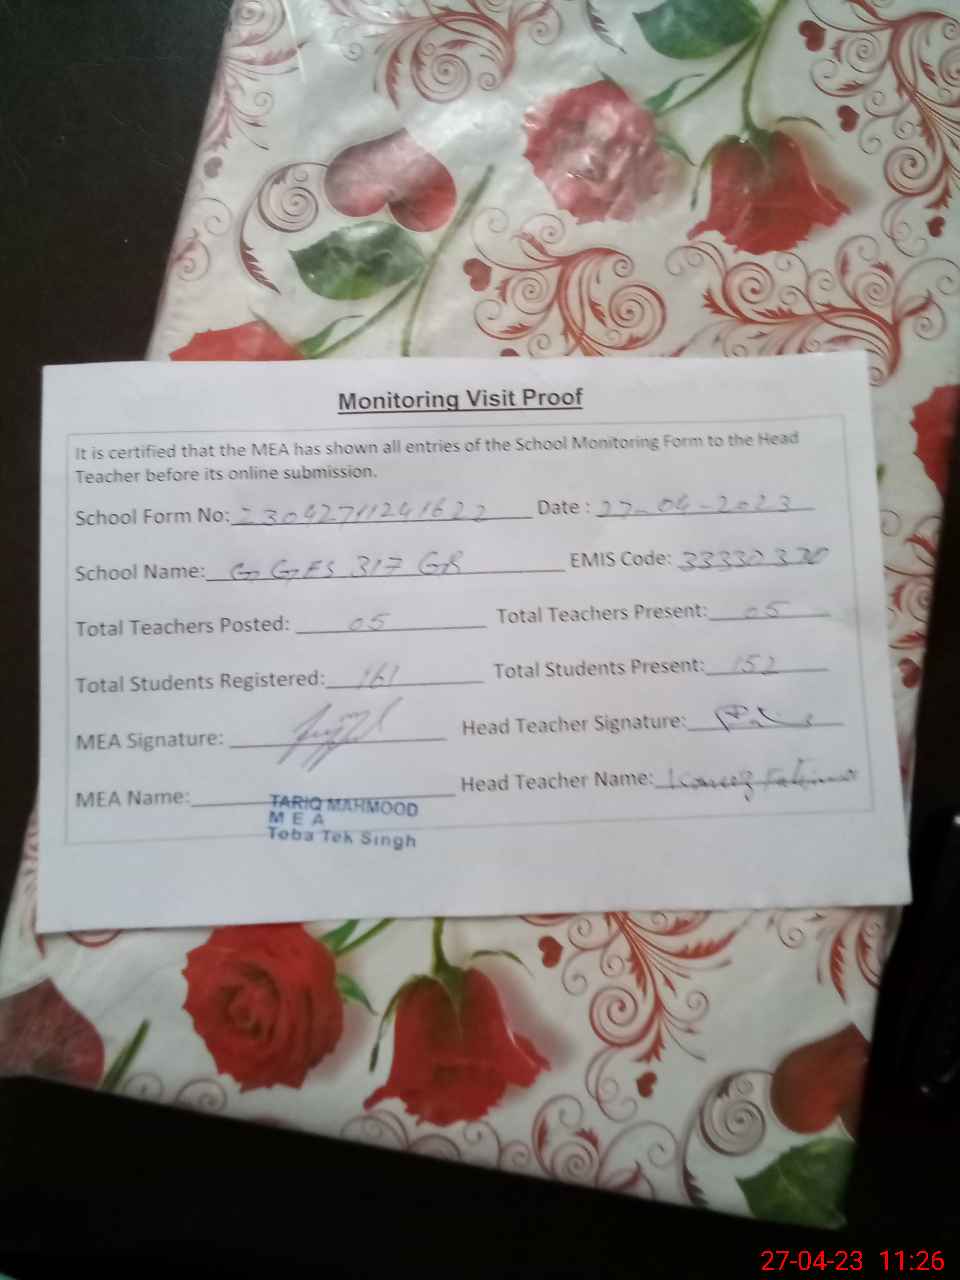 Monitoring Visit Proof
It is certified that the MEA has shown all entries of the School Monitoring Form to the Head
Teacher before its online submission.
School Form No: 23042711241622 Date : 27-04-2023
School Name: GGES 317 GB EMIS Code: 33330320
Total Teachers Posted: 05 Total Teachers Present: 05
Total Students Registered: 161 Total Students Present: 152
MEA Signature: Head Teacher Signature:
MEA Name: Head Teacher Name: Kaneez Fatima
TARIQ MAHMOOD
M E A
Toba Tek Singh
27-04-23 11:26